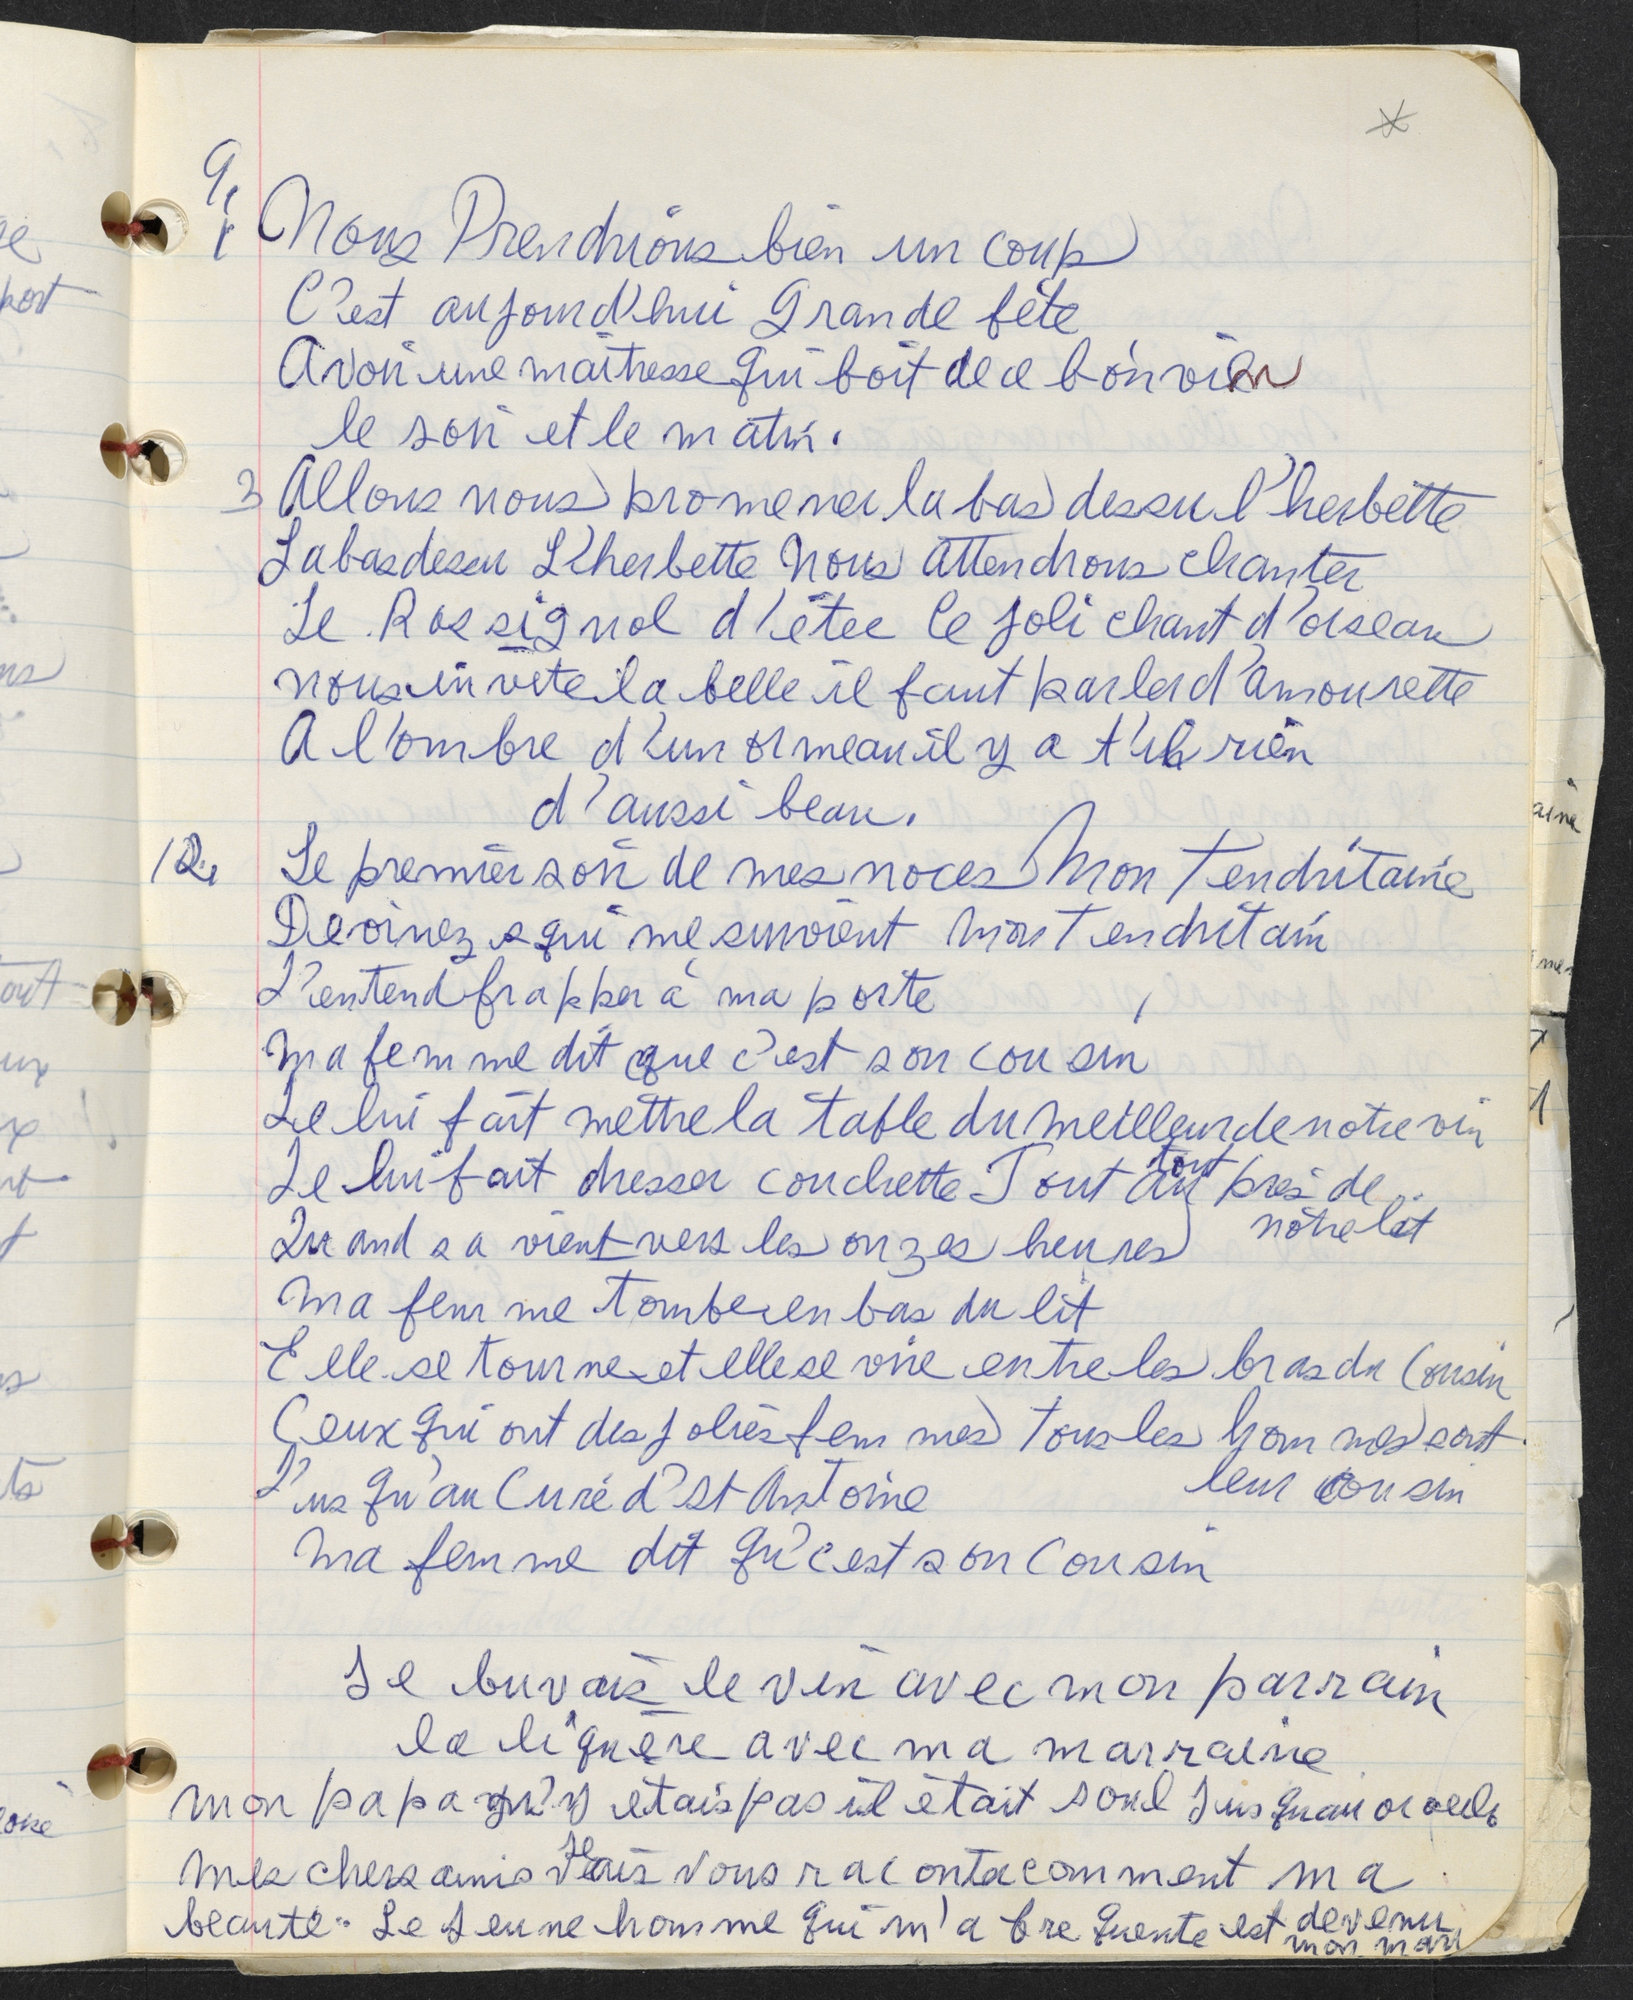 *
9.
1 Nous Prendrions bien un coup
C'est aujourd'hui Grande fête
Avoir une maîtresse qui boit de ce bon vin
le soir et le matin.
3 Allons nous promener la bas dessu l'herbette
La bas dessu L'herbette Nous attendrons chanter
Le Rossignol d'étee le joli chant d'oiseau
nous invite la belle il faut parler d'amourette
A l'ombre d'un ormeau il y a t'il rien
d'aussi beau.
12. Le premier soir de mes noces Mon Tendritaine
Devinez qui me survient Mon Tendritain
J'entend frapper à ma porte
Ma femme dit que c'est son cousin
Je lui fait mettre la table du meilleur de notre vin
Je lui fait dresser couchette Tout tout près de
notre lit
Quand sa vient vers les onzes heures
Ma femme tombe en bas du lit
Elle se tourne et elle se vire entre les bras du Cousin
Ceux qui ont des jolies femmes tous les hommes sont
leur cousin
J'usqu'au Curé d'St Antoine
Ma femme dit qu'c'est son Cousin
Je buvais le vin avec mon parrain
la liquère avec ma marraine
Mon papa qu'y etais pas il était soul Jusquau
Mes chers amis Je vais vous raconta comment ma
beauté. Le Jeune homme qui m'a frequente est devenu
mon mari